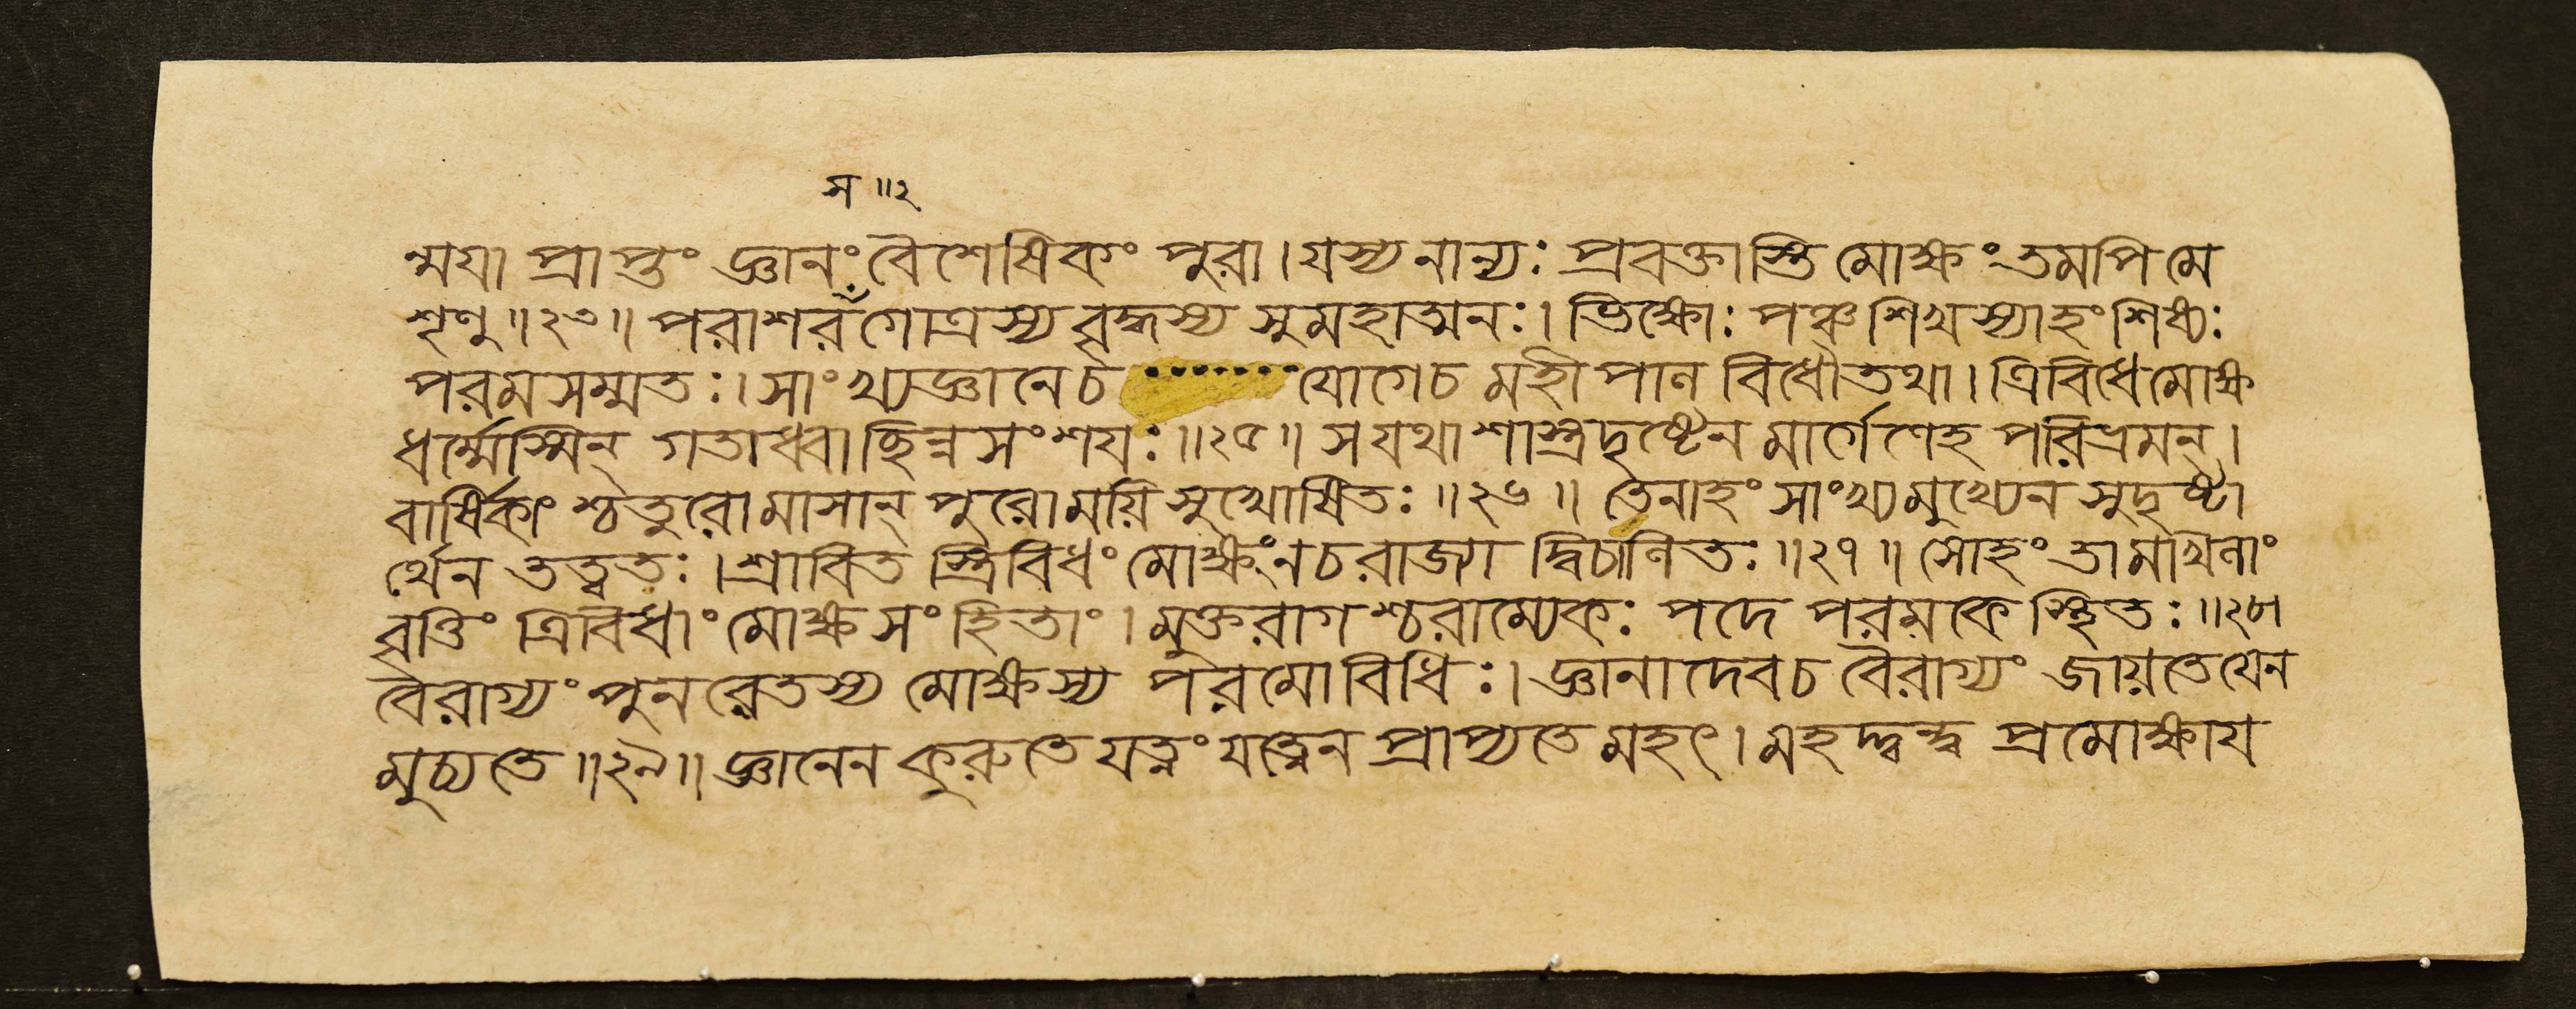 স ॥২
ন্ময়া প্রাপ্তং জ্ঞানং বৈশেষিকং পুরা। যস্য নান্যঃ প্রবক্তাস্তি মোক্ষং তমপি মে
শৃণু ॥২৩॥ পরাশরগোত্রস্য বৃদ্ধস্য সুমহাত্মনঃ। ভিক্ষোঃ পঞ্চশিখস্যাহং শিষ্যঃ
পরমসম্মতঃ। সাংখ্যজ্ঞানে চ ········ যোগে চ মহীপান বিধৌ তথা। ত্রিবিধে মোক্ষ
ধর্ম্মেস্মিন্ গতাধ্বা ছিন্নসংশয়ঃ ॥২৫॥ স যথা শাস্ত্রদৃষ্টেন মার্গেণেহ পরিভ্রমন্।
বার্ষিকাং শ্চতুরো মাসান্ পুরো ময়ি সুখোষিতঃ ॥২৬॥ তেনাহং সাংখ্যমুখ্যেন সুদৃষ্টা
র্থেন তত্ত্বতঃ। শ্রাবিত স্ত্রিবিধং মোক্ষং ন চ রাজ্যা দ্বিচানিতঃ ॥২৭॥ সোহং তামাখিনাং
বৃত্তিং ত্রিবিধাং মোক্ষসংহিতাং। মুক্তরাগ শ্চরাম্যেকঃ পদে পরমকে স্থিতঃ ॥২৮।
বৈরাগ্যং পুনরেতস্য মোক্ষস্য পরমো বিধিঃ। জ্ঞানাদেব চ বৈরাগ্যং জায়তে যেন
মুচ্যতে ॥২৯॥ জ্ঞানেন কুরুতে যত্নং যত্নেন প্রাপ্যতে মহৎ। মহদ্দ্বন্দ্ব প্রমোক্ষায়